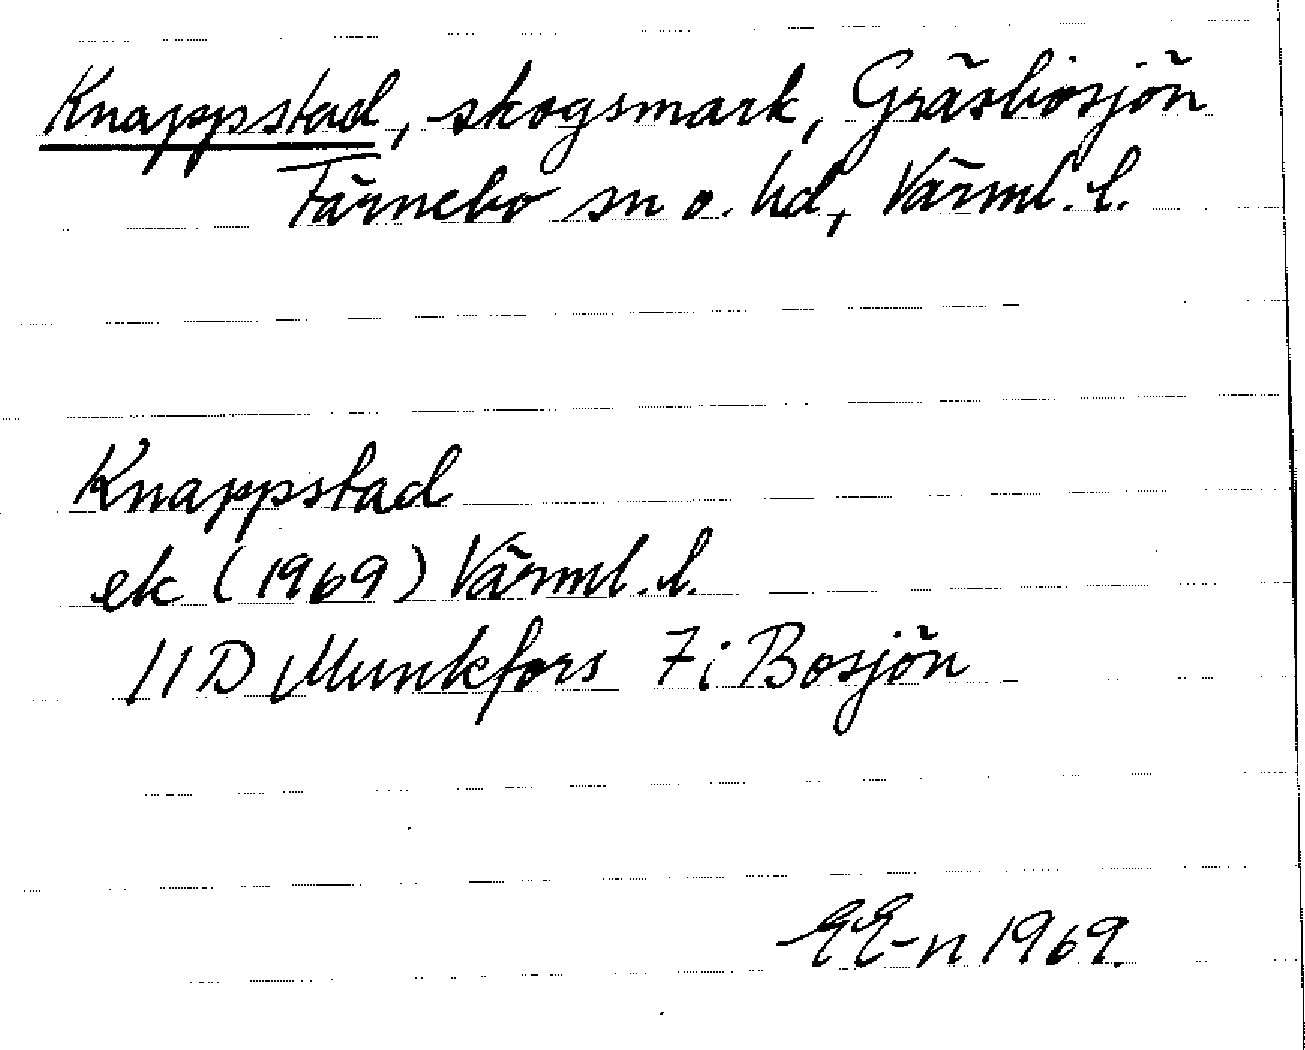 Knappstad, skogsmark, Gräsbosjön
Färnebo sn o. hd, Värml. l.
Knappstad
ek (1969) Värml. l.
11D Munkfors 7i Bosjön
EE-n 1969.